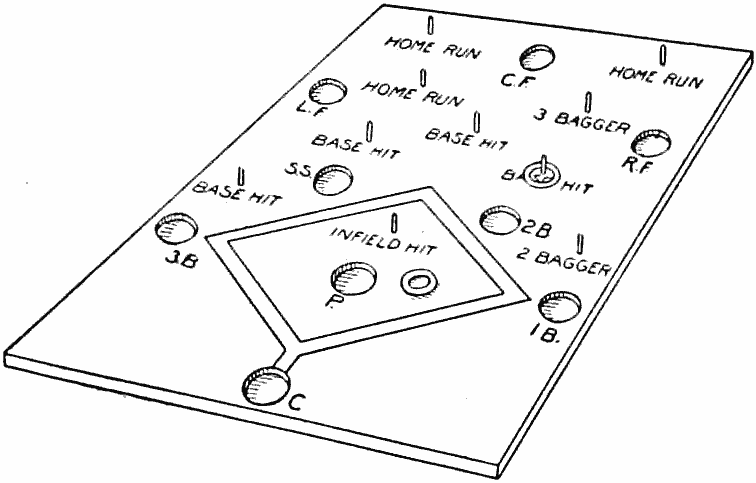 HOME RUN
C.F.
HOME RUN
HOME RUN
L.F
3 BAGGER
BASE HIT
BASE HIT
R.F.
S.S.
BA HIT
BASE HIT
2B
INFIELD HIT
3.B
2 BAGGER
P.
1B.
C